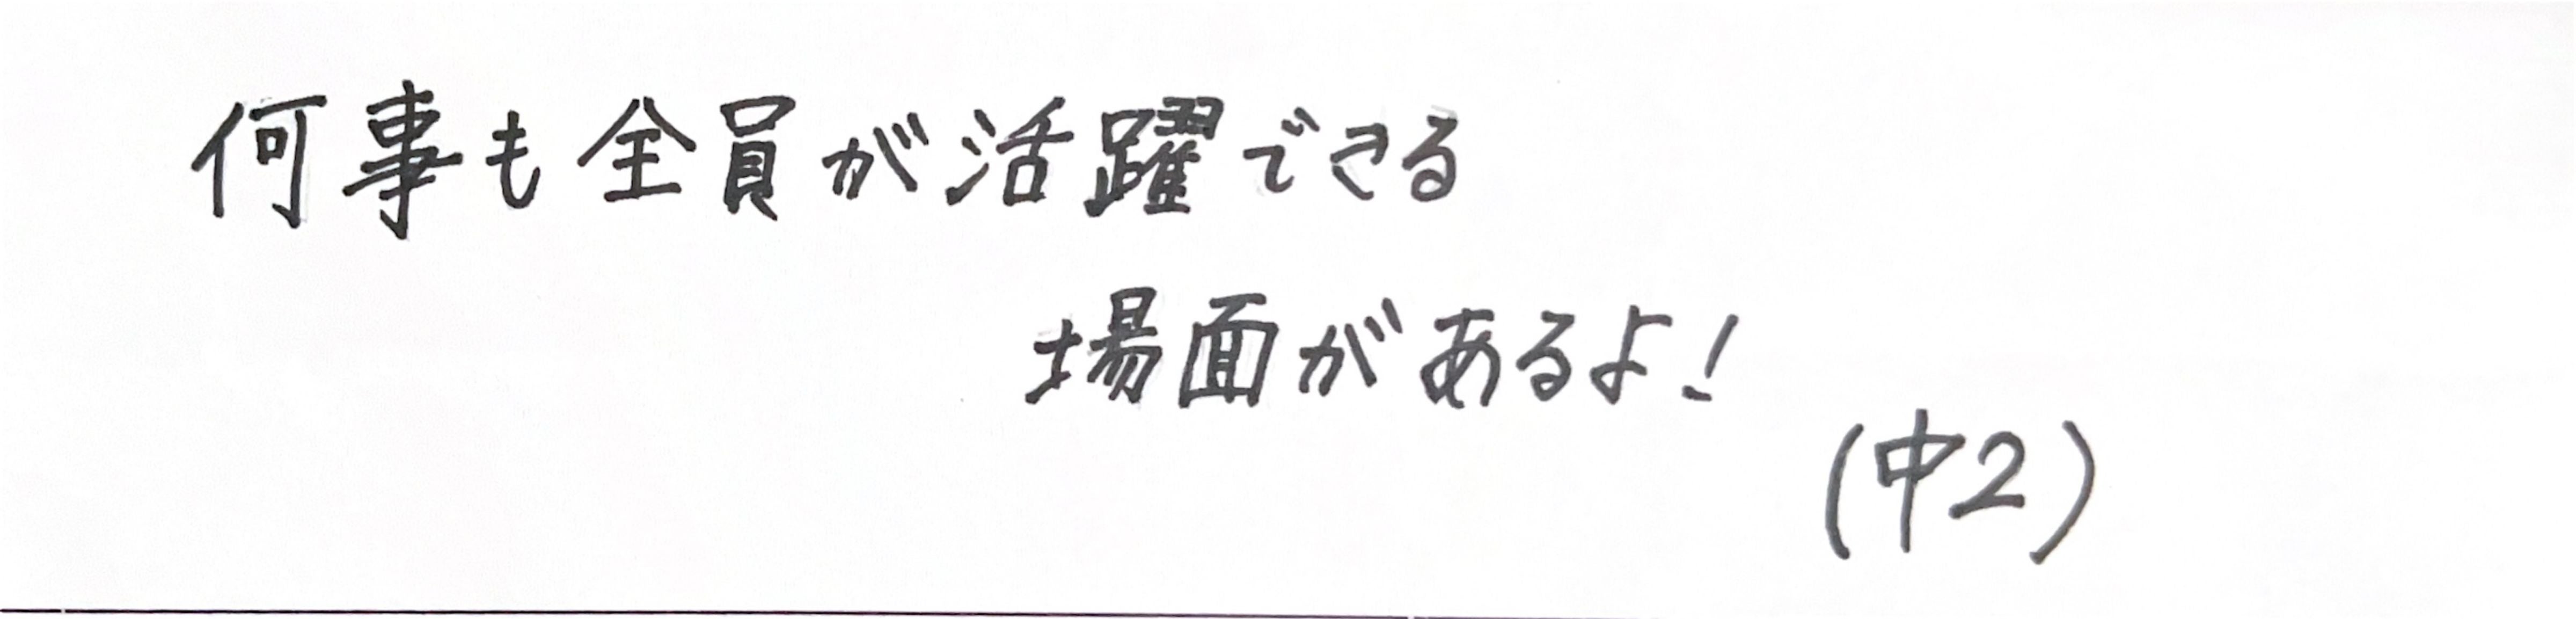 何事も全員が活躍できる
場面があるよ!
(中2)